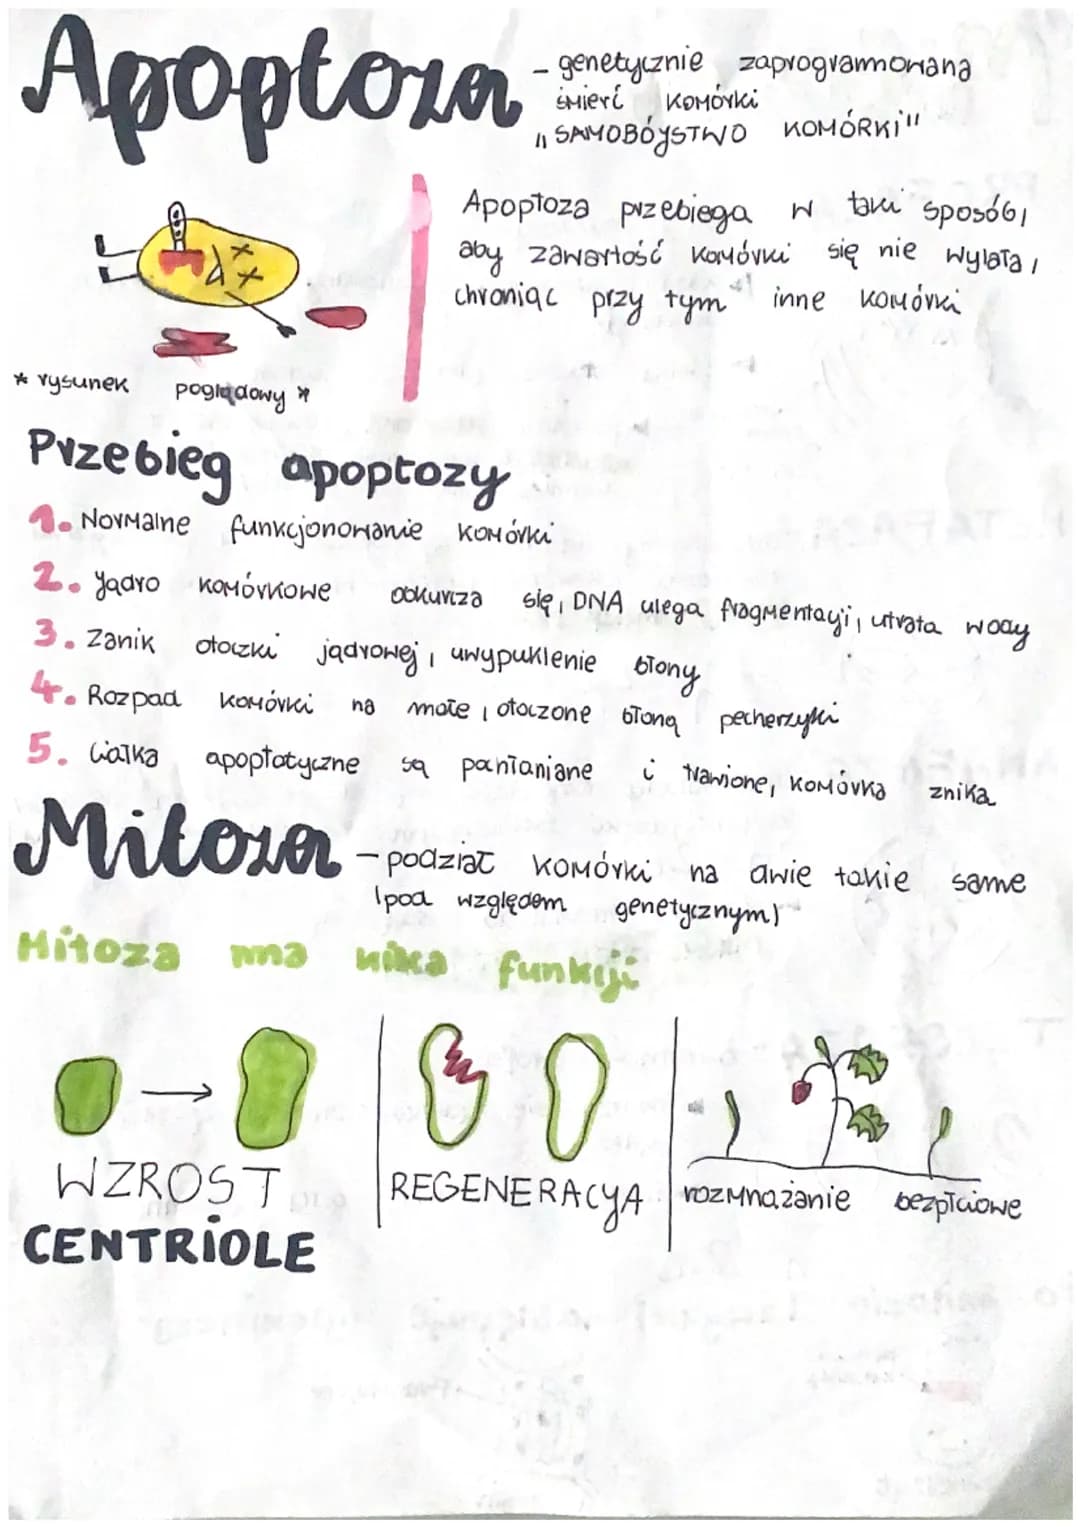 Apoptoza
- genetycznie zaprogramowana
śmierć komórki
„SAMOBÓJSTWO KOMÓRKI"
Apoptoza przebiega w taki sposób,
aby zawartość komórki się nie wylała,
chroniąc przy tym inne komórki
* rysunek poglądowy *
Przebieg apoptozy
1. Normalne funkcjonowanie komórki
2. Jądro komórkowe obkurcza się, DNA ulega fragmentacji, utrata wody
3. Zanik otoczki jądrowej, uwypuklenie błony
4. Rozpad komórki na małe, otoczone błoną pęcherzyki
5. Ciałka apoptotyczne są pochłaniane i trawione, komórka znika
Mitoza - podział komórki na dwie takie same
(pod względem genetycznym)
Mitoza ma kilka funkcji
WZROST
REGENERACJA
rozmnażanie bezpłciowe
CENTRIOLE